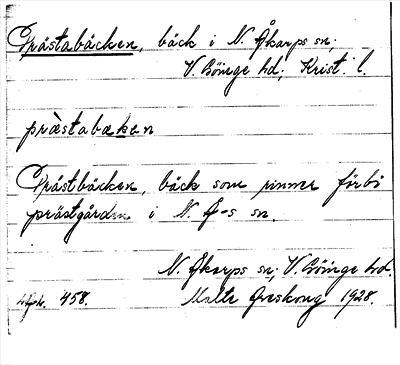 Prästabäcken, bäck i N. Åkarps sn;
V. Göinge hd; Krist. l.
præ̀stabækɛn
Prästbäcken, bäck som rinner förbi
prästgården i N. Å-s sn.
N. Åkarps sn; V. Göinge hd.
458. Malte Areskoug 1928.